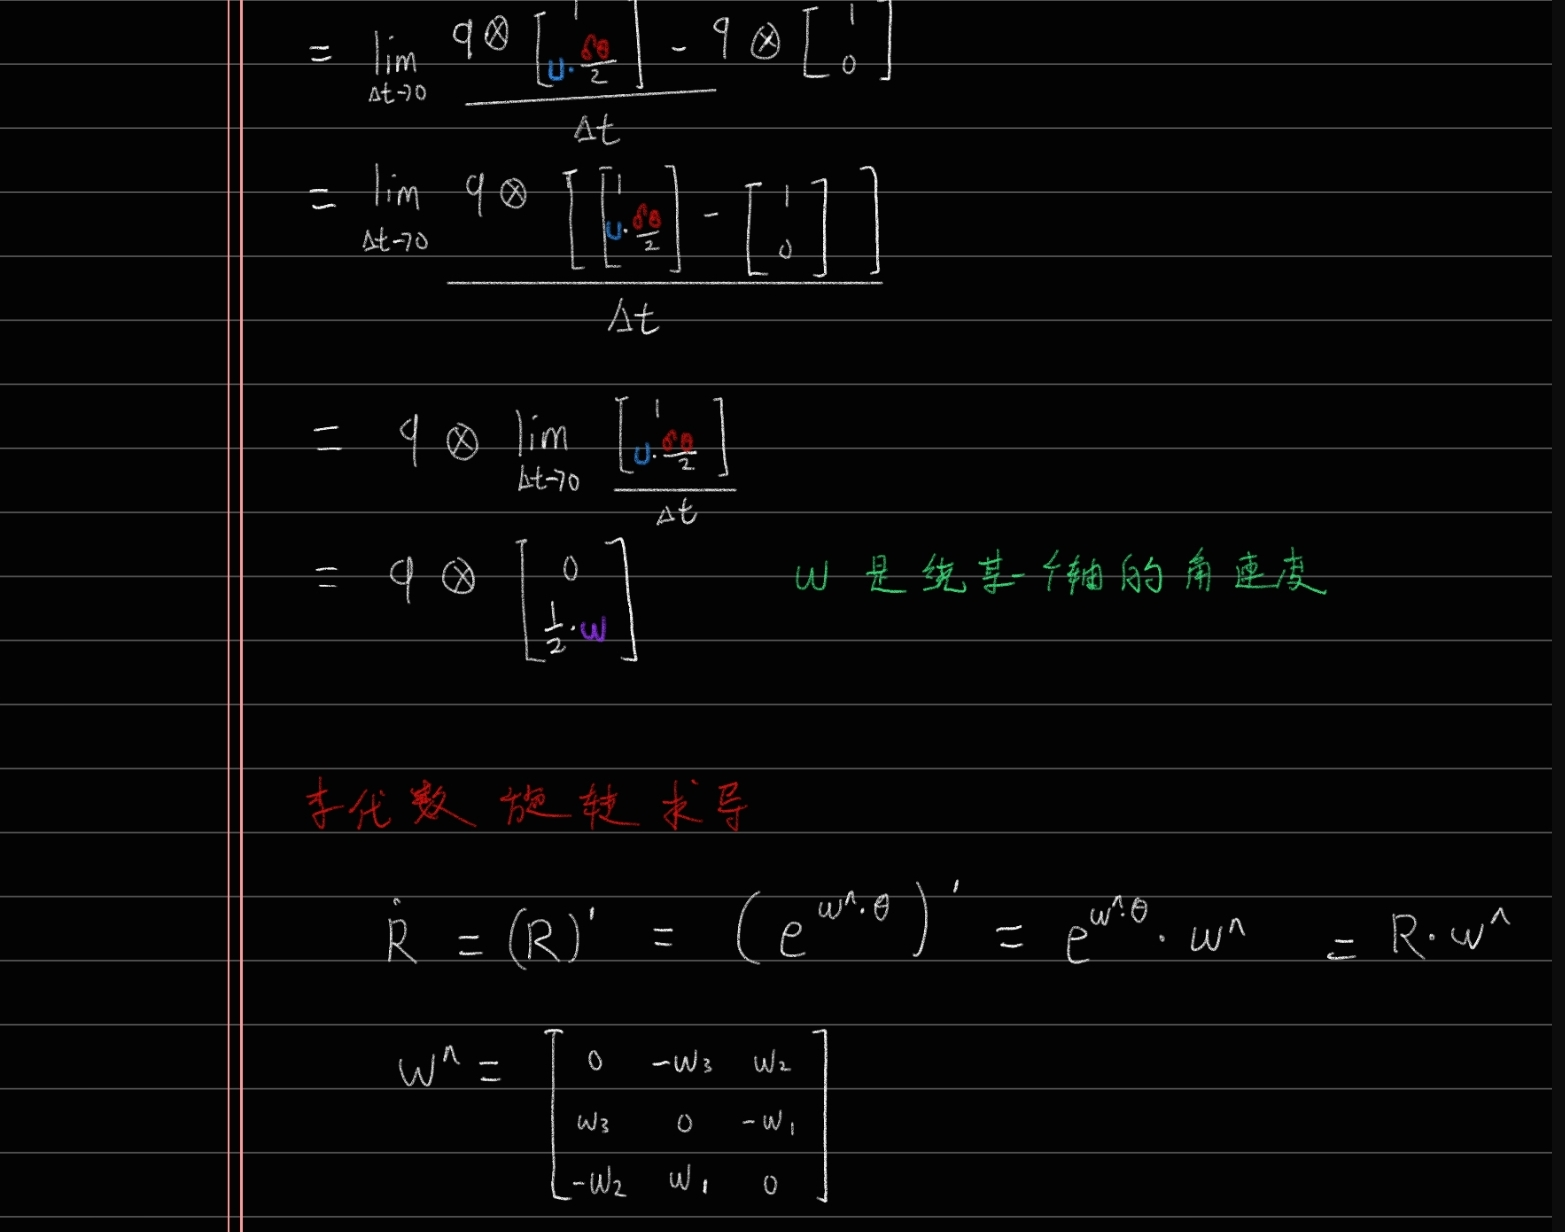 = lim_{Δt→0} (q ⊗ [1; u·δθ/2] - q ⊗ [1; 0]) / Δt
= lim_{Δt→0} (q ⊗ [[1; u·δθ/2] - [1; 0]]) / Δt
= q ⊗ lim_{Δt→0} [1; u·δθ/2] / Δt
= q ⊗ [0; 1/2·w] w 是绕某一个轴的角速度
李代数 旋转 求导
Ṙ = (R)' = (e^{w^·θ})' = e^{w^·θ}·w^ = R·w^
w^ = [0 -w₃ w₂
w₃ 0 -w₁
-w₂ w₁ 0]